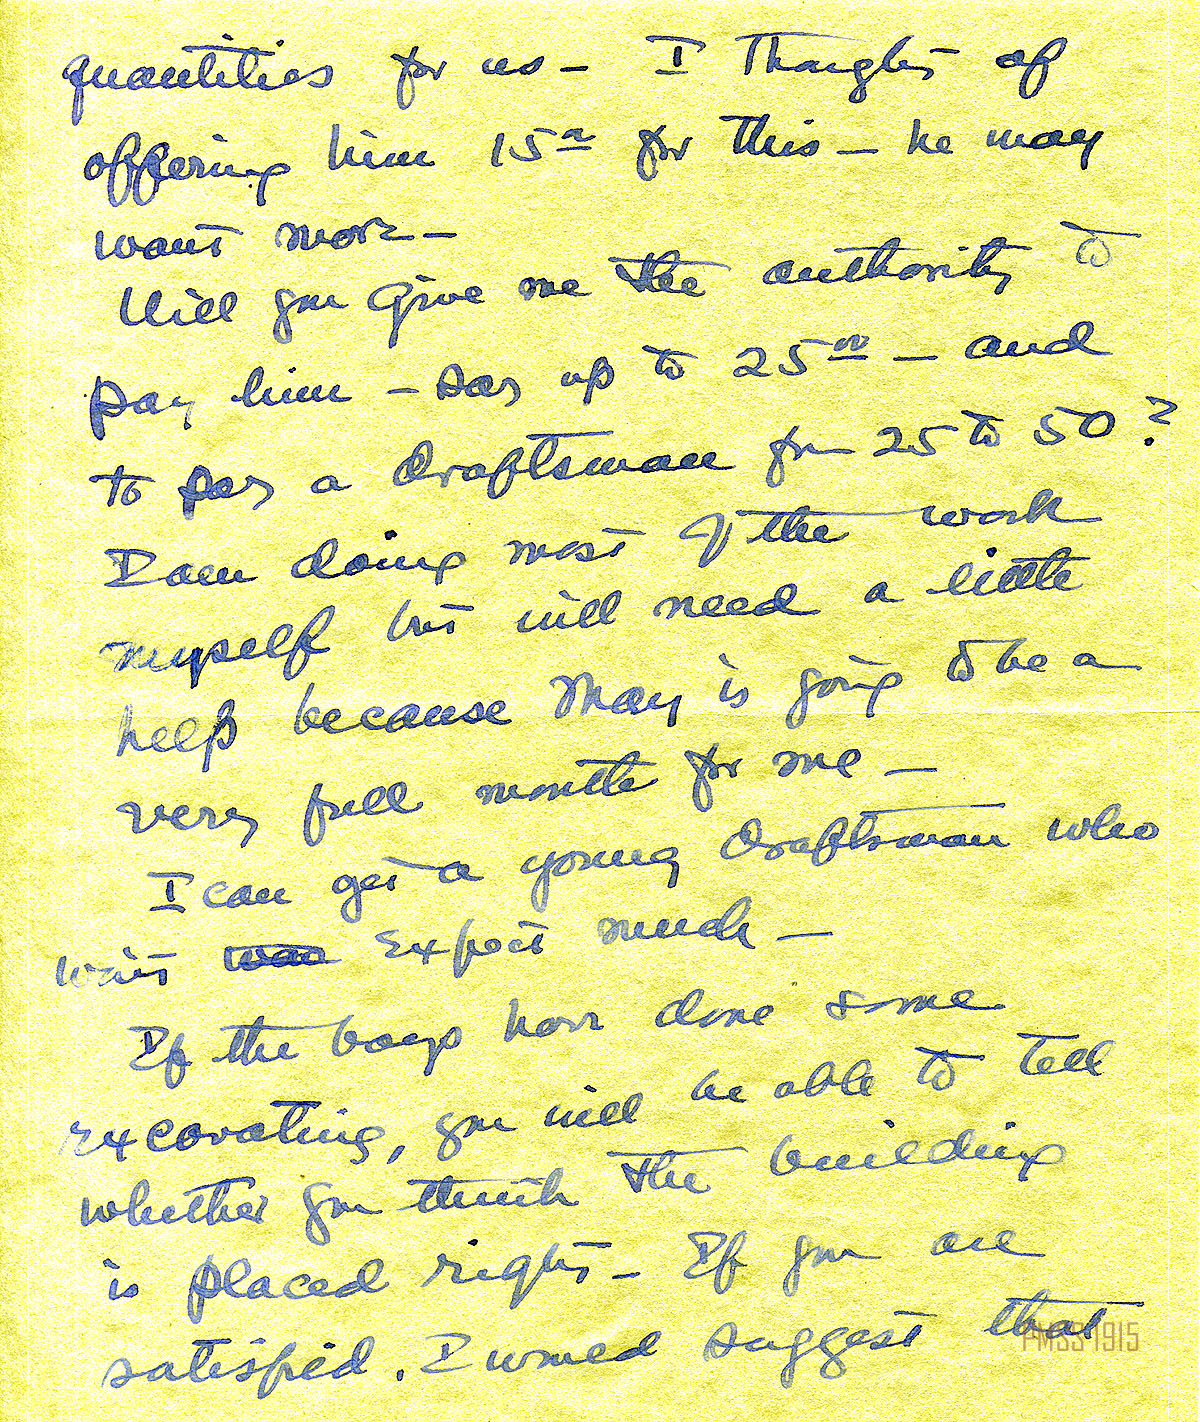 quantities for us – I thought of
offering him 15°° for this – he may
want more –
Will you give me the authority to
pay him – say up to 25°° – and
to pay a draftsman from 25 to 50?
I am doing most of the work
myself but will need a little
help because May is going to be a
very full month for me –
I can get a young draftsman who
won't expect much –
If the boys have done some
excavating, you will be able to tell
whether you think the building
is placed right – If you are
satisfied, I would suggest that
PMSS 1915